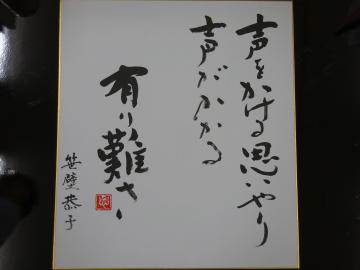 声をかける思いやり
声がかかる
有り難さ
笹壁恭子